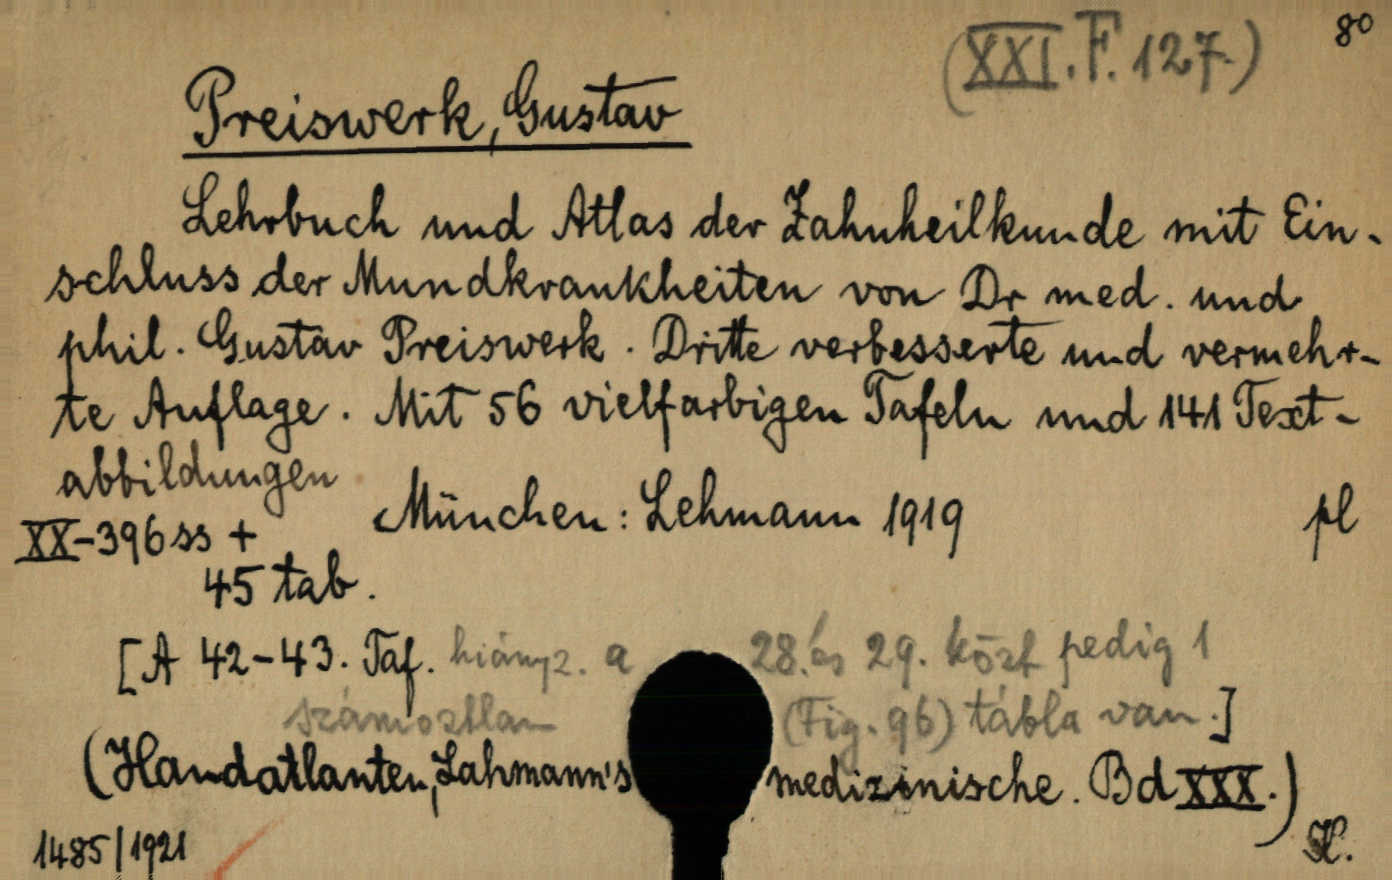 (XXI.F.127.) 8°
Preiswerk, Gustav
Lehrbuch und Atlas der Zahnheilkunde mit Ein-
schluss der Mundkrankheiten von Dr med. und
phil. Gustav Preiswerk. Dritte verbesserte und vermehr-
te Auflage. Mit 56 vielfarbigen Tafeln und 141 Text-
abbildungen
München: Lehmann 1919 pl
XX-396 ss +
45 tab.
[A 42-43. Taf. hiányz. a 28. és 29. közt pedig 1
számoztlan (Fig. 96) tábla van.]
(Handatlanten, Lahmann's medizinische. Bd XXX.)
1485/1921 H.